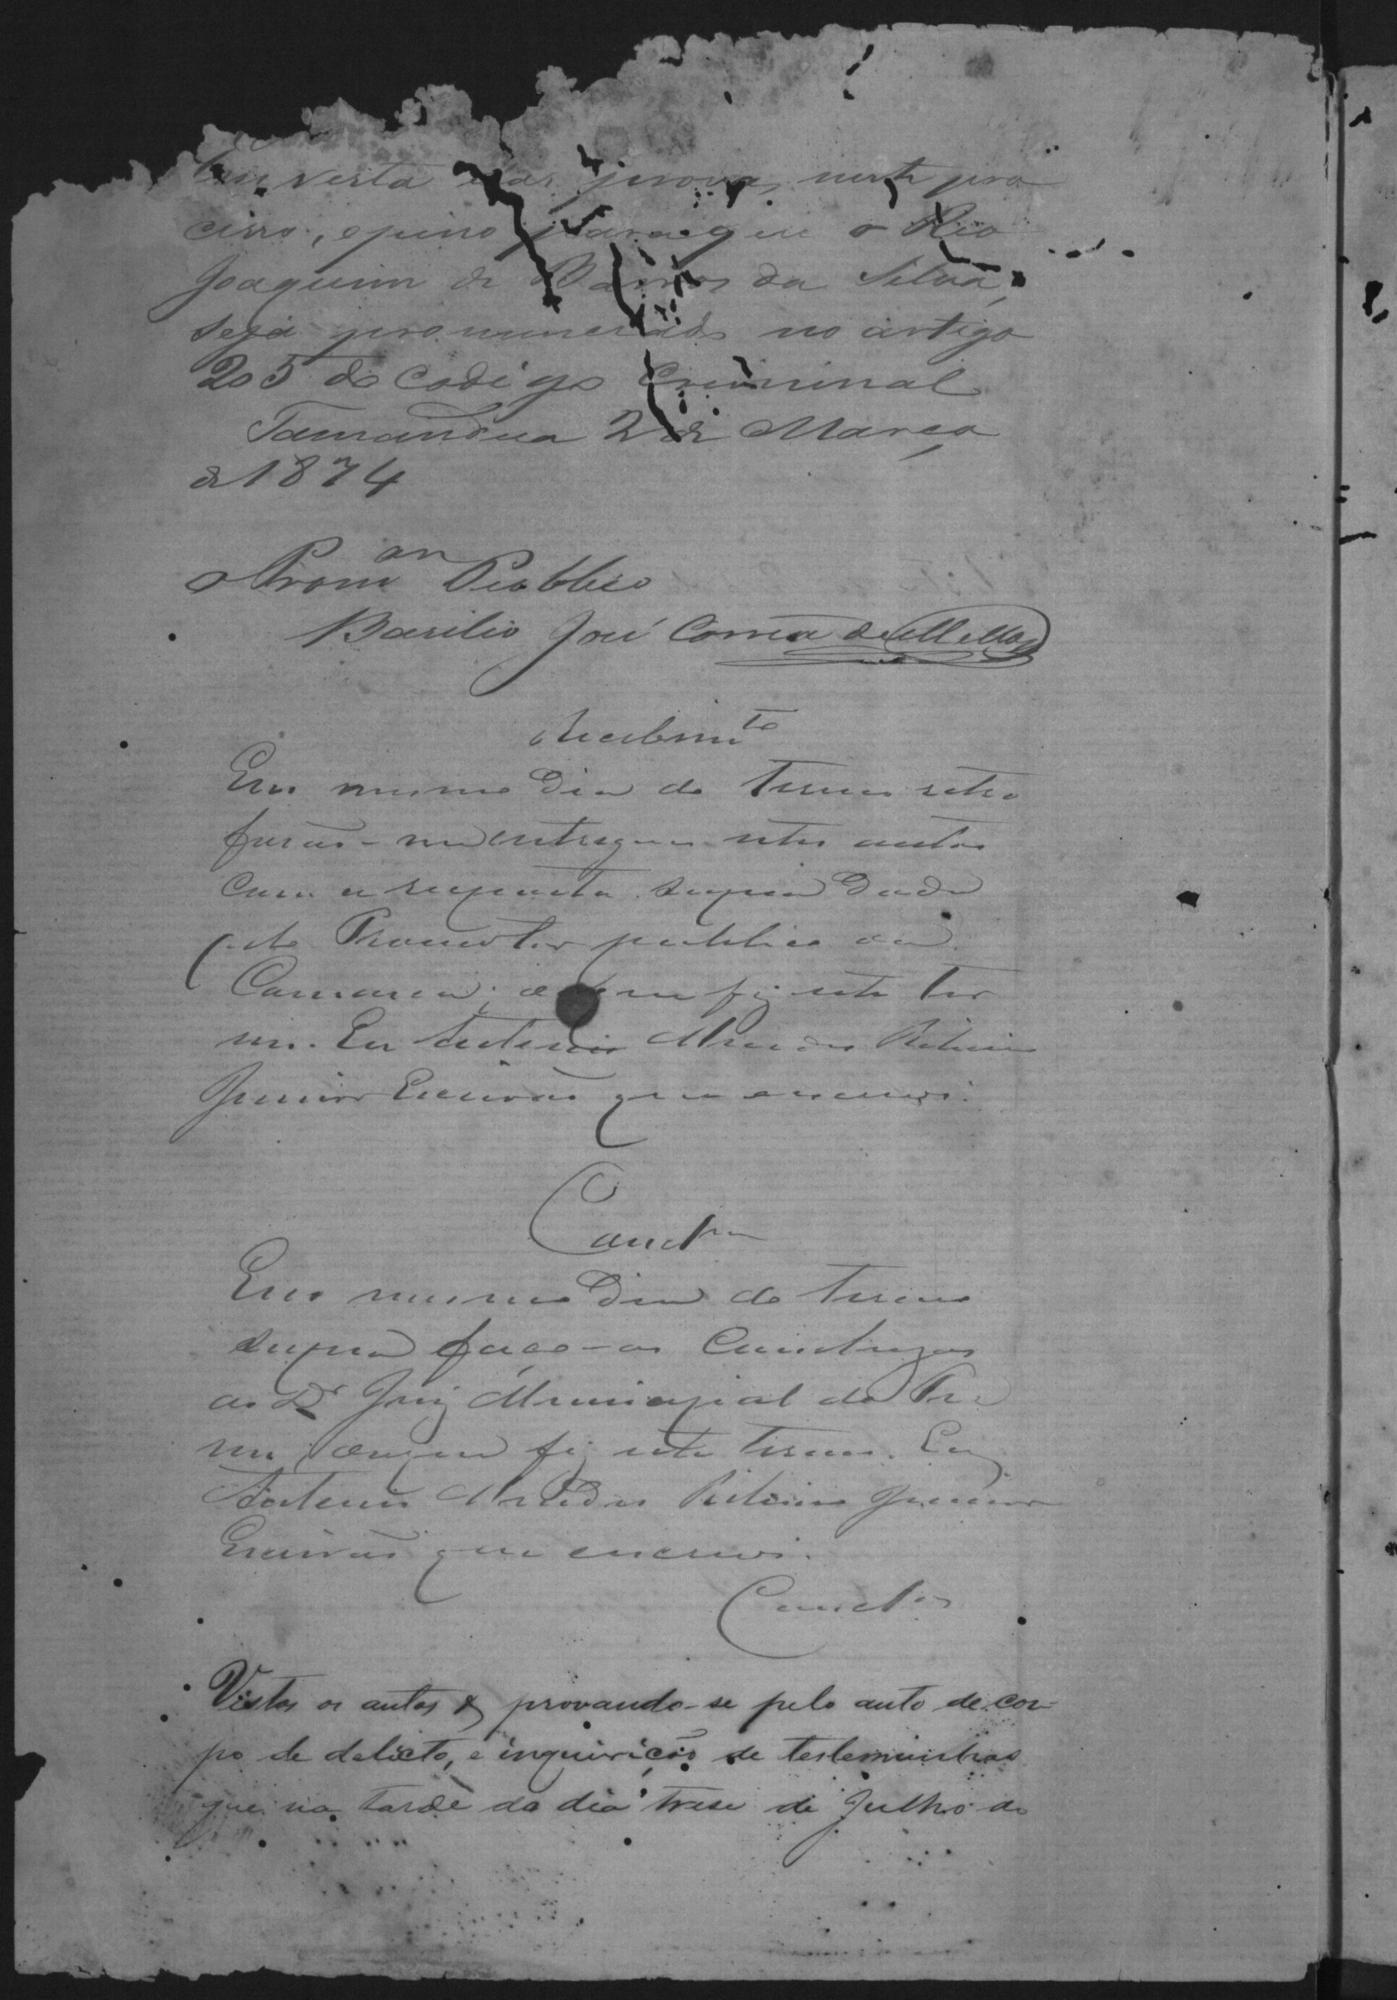 Em vista das provas neste pro
cesso, opino para que o Reo
Joaquim de Barros da Silva,
seja pronunciado no artigo
205 do Codigo Criminal
Tamandua 2 de Março
de 1874
o Prom.or Publico
Basilio José Corrêa de Mello
Recebim.to
Em mesmo dia do termo retro
forão-me entregues estes autos
com a resposta supra dada
pelo Promotor publico da
Comarca; do que fiz este ter
mo. Eu Antonio Mendes Ribeiro
Junior Escrivão que escrevi.
Concl.m
Em mesmo dia do termo
supra faço-os Conclusos
ao D.r Juiz Municipal do Ter
mo; do que fiz este termo. Eu
Antonio Mendes Ribeiro Junior
Escrivão que escrevi.
Concl.os
Vistos os autos & provando-se pelo auto de cor-
po de delicto, e inquirição de testemunhas
que na tarde do dia trese de Julho do